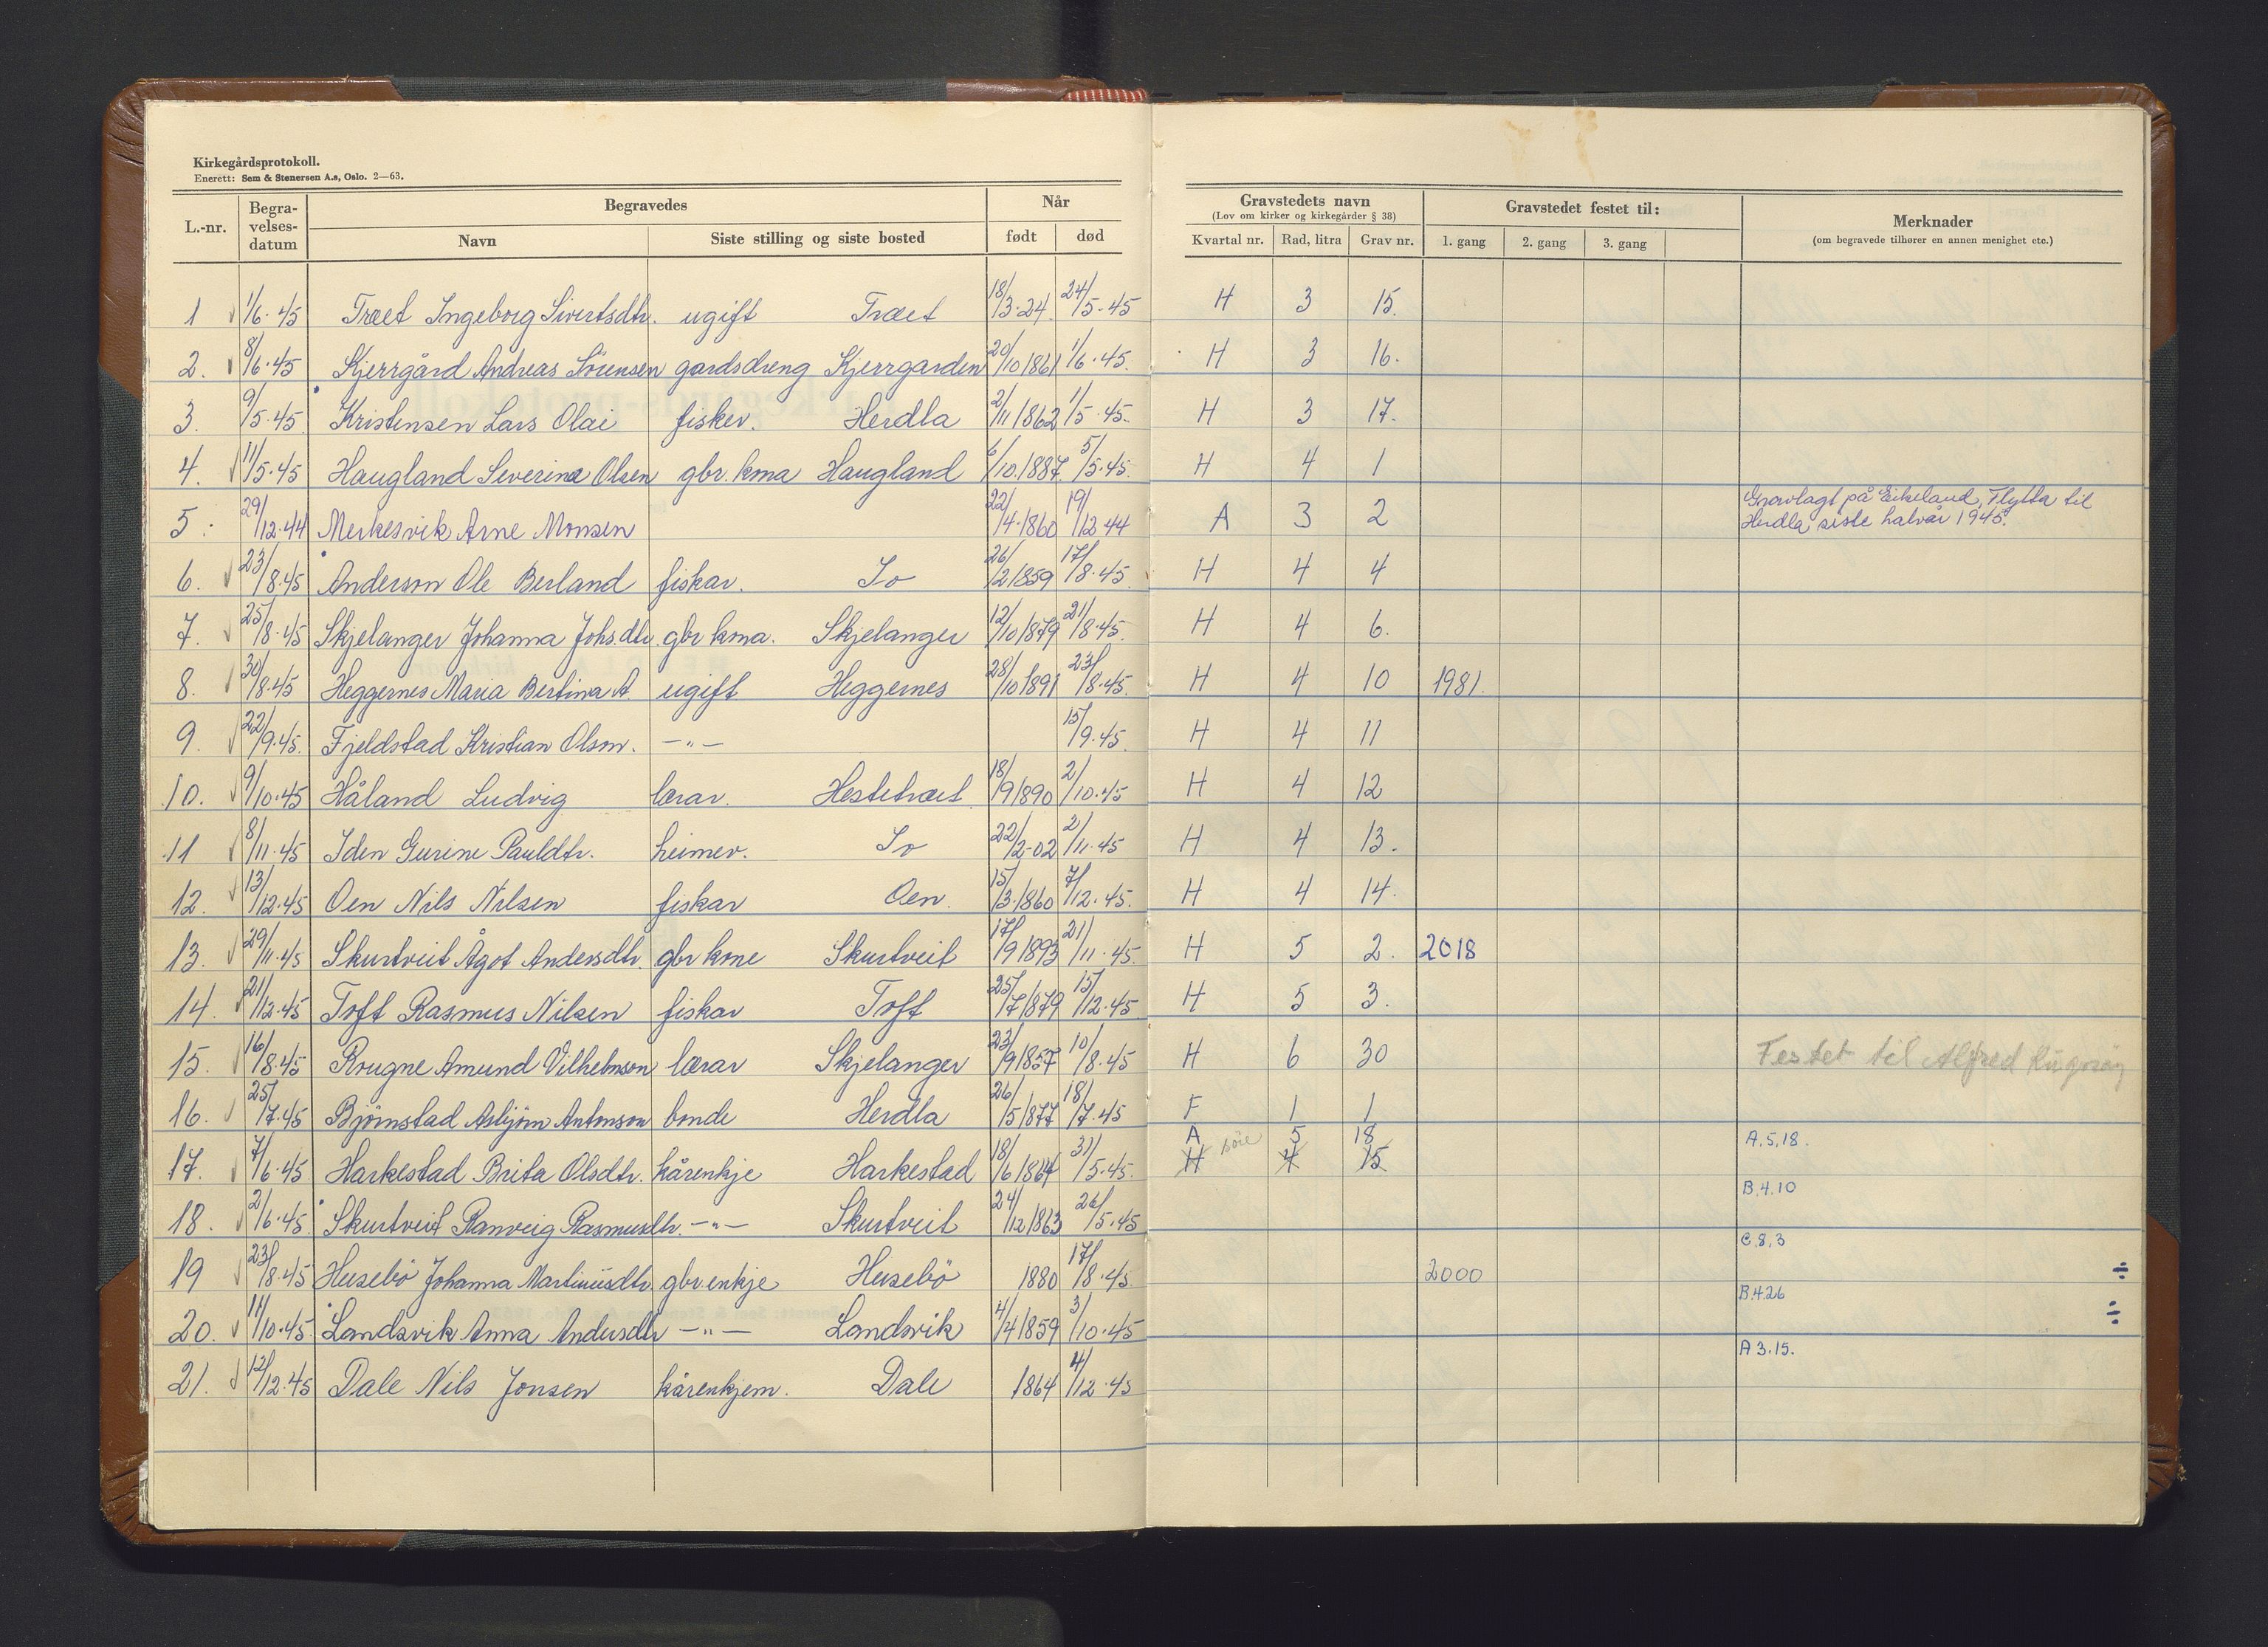 Kirkegårdsprotokoll.
Enerett: Sem & Stenersen A.s, Oslo. 2—63.
L.-nr. Begra-velses-datum Begravedes Når Gravstedets navn (Lov om kirker og kirkegårder § 38) Gravstedet festet til: Merknader (om begravede tilhører en annen menighet etc.)
Navn Siste stilling og siste bosted født død Kvartal nr. Rad, litra Grav nr. 1. gang 2. gang 3. gang
1 1/6·45 Træet Ingeborg Sivertsdtr. ugift Træet 18/3·24 24/5·45 H 3 15.
2. 8/6·45 Kjerrgård Andreas Sörensen gardsdreng Kjerrgarden 20/10 1861 1/6·45. H 3 16.
3. 9/5·45 Kristensen Lars Olai fisker. Herdla 2/11 1862 1/5·45. H 3 17.
4. 11/5·45 Haugland Severina Olsen gbr. kona Haugland 6/10.1887. 5/5·45. H 4 1
5. 29/12·44 Merkesvik Arne Monsen 22/4·1860 19/12 44 A 3 2 Gravlagt på Eikeland, Flytta til Herdla siste halvår 1945.
6. 23/8·45 Anderson Ole Berland fiskar. Io 26/2 1859 17/8·45 H 4 4
7. 25/8·45 Skjelanger Johanna Johs.dtr. gbr kona. Skjelanger 12/10 1879 21/8·45. H 4 6.
8. 30/8·45 Heggernes Maria Bertina A. ugift Heggernes 28/10 1891 23/8·45. H 4 10 1981.
9. 22/9·45. Fjeldstad Kristian Olson. —"— 15/9·45. H 4 11
10. 9/10·45 Håland Ludvig lærar. Hestetræet 18/9 1890 2/10·45 H 4 12
11 8/11·45 Iden Gurine Pauldtr. heimev. Io 22/2-02 2/11·45 H 4 13.
12. 13/12·45 Oen Nils Nilsen fiskar Oen. 15/3·1860 7/12·45. H 4 14.
13. 29/11·45 Skurtveit Ågot Andersdtr. gbr kone Skurtveit 17/9 1893 21/11·45. H 5 2. 2018
14. 21/12·45 Toft Rasmus Nilsen fiskar Toft 25/7 1879 15/12·45 H 5 3.
15. 16/8·45 Rougne Amund Vilhelmson lærar Skjelanger 23/9 1857 10/8·45 H 6 30 Festet til Alfred
16. 25/7·45 Björnstad Asbjörn Antonson bonde Herdla 26/5 1877 18/7·45 F 1 1
A 5 18 A.5.18.
17. 7/6·45 Harkestad Brita Olsdtr. kårenkje Harkestad 18/6 1864 31/5·45. H 4 15
B.4.10
18. 2/6·45 Skurtveit Ranveig Rasmusdtr. —"— Skurtveit 24/12 1863 26/5·45
C.8,3
19 23/8·45 Husebö Johanna Martiniusdtr. gbr enkje Husebö 1880 17/8·45 2000 ÷
B.4.26
20. 11/10·45 Landsvik Anna Andersdtr —"— Landsvik 4/4 1859 3/10·45 ÷
A 3.15.
21. 12/12·45 Dale Nils Jonsen kårenkjem. Dale 1864 4/12·45